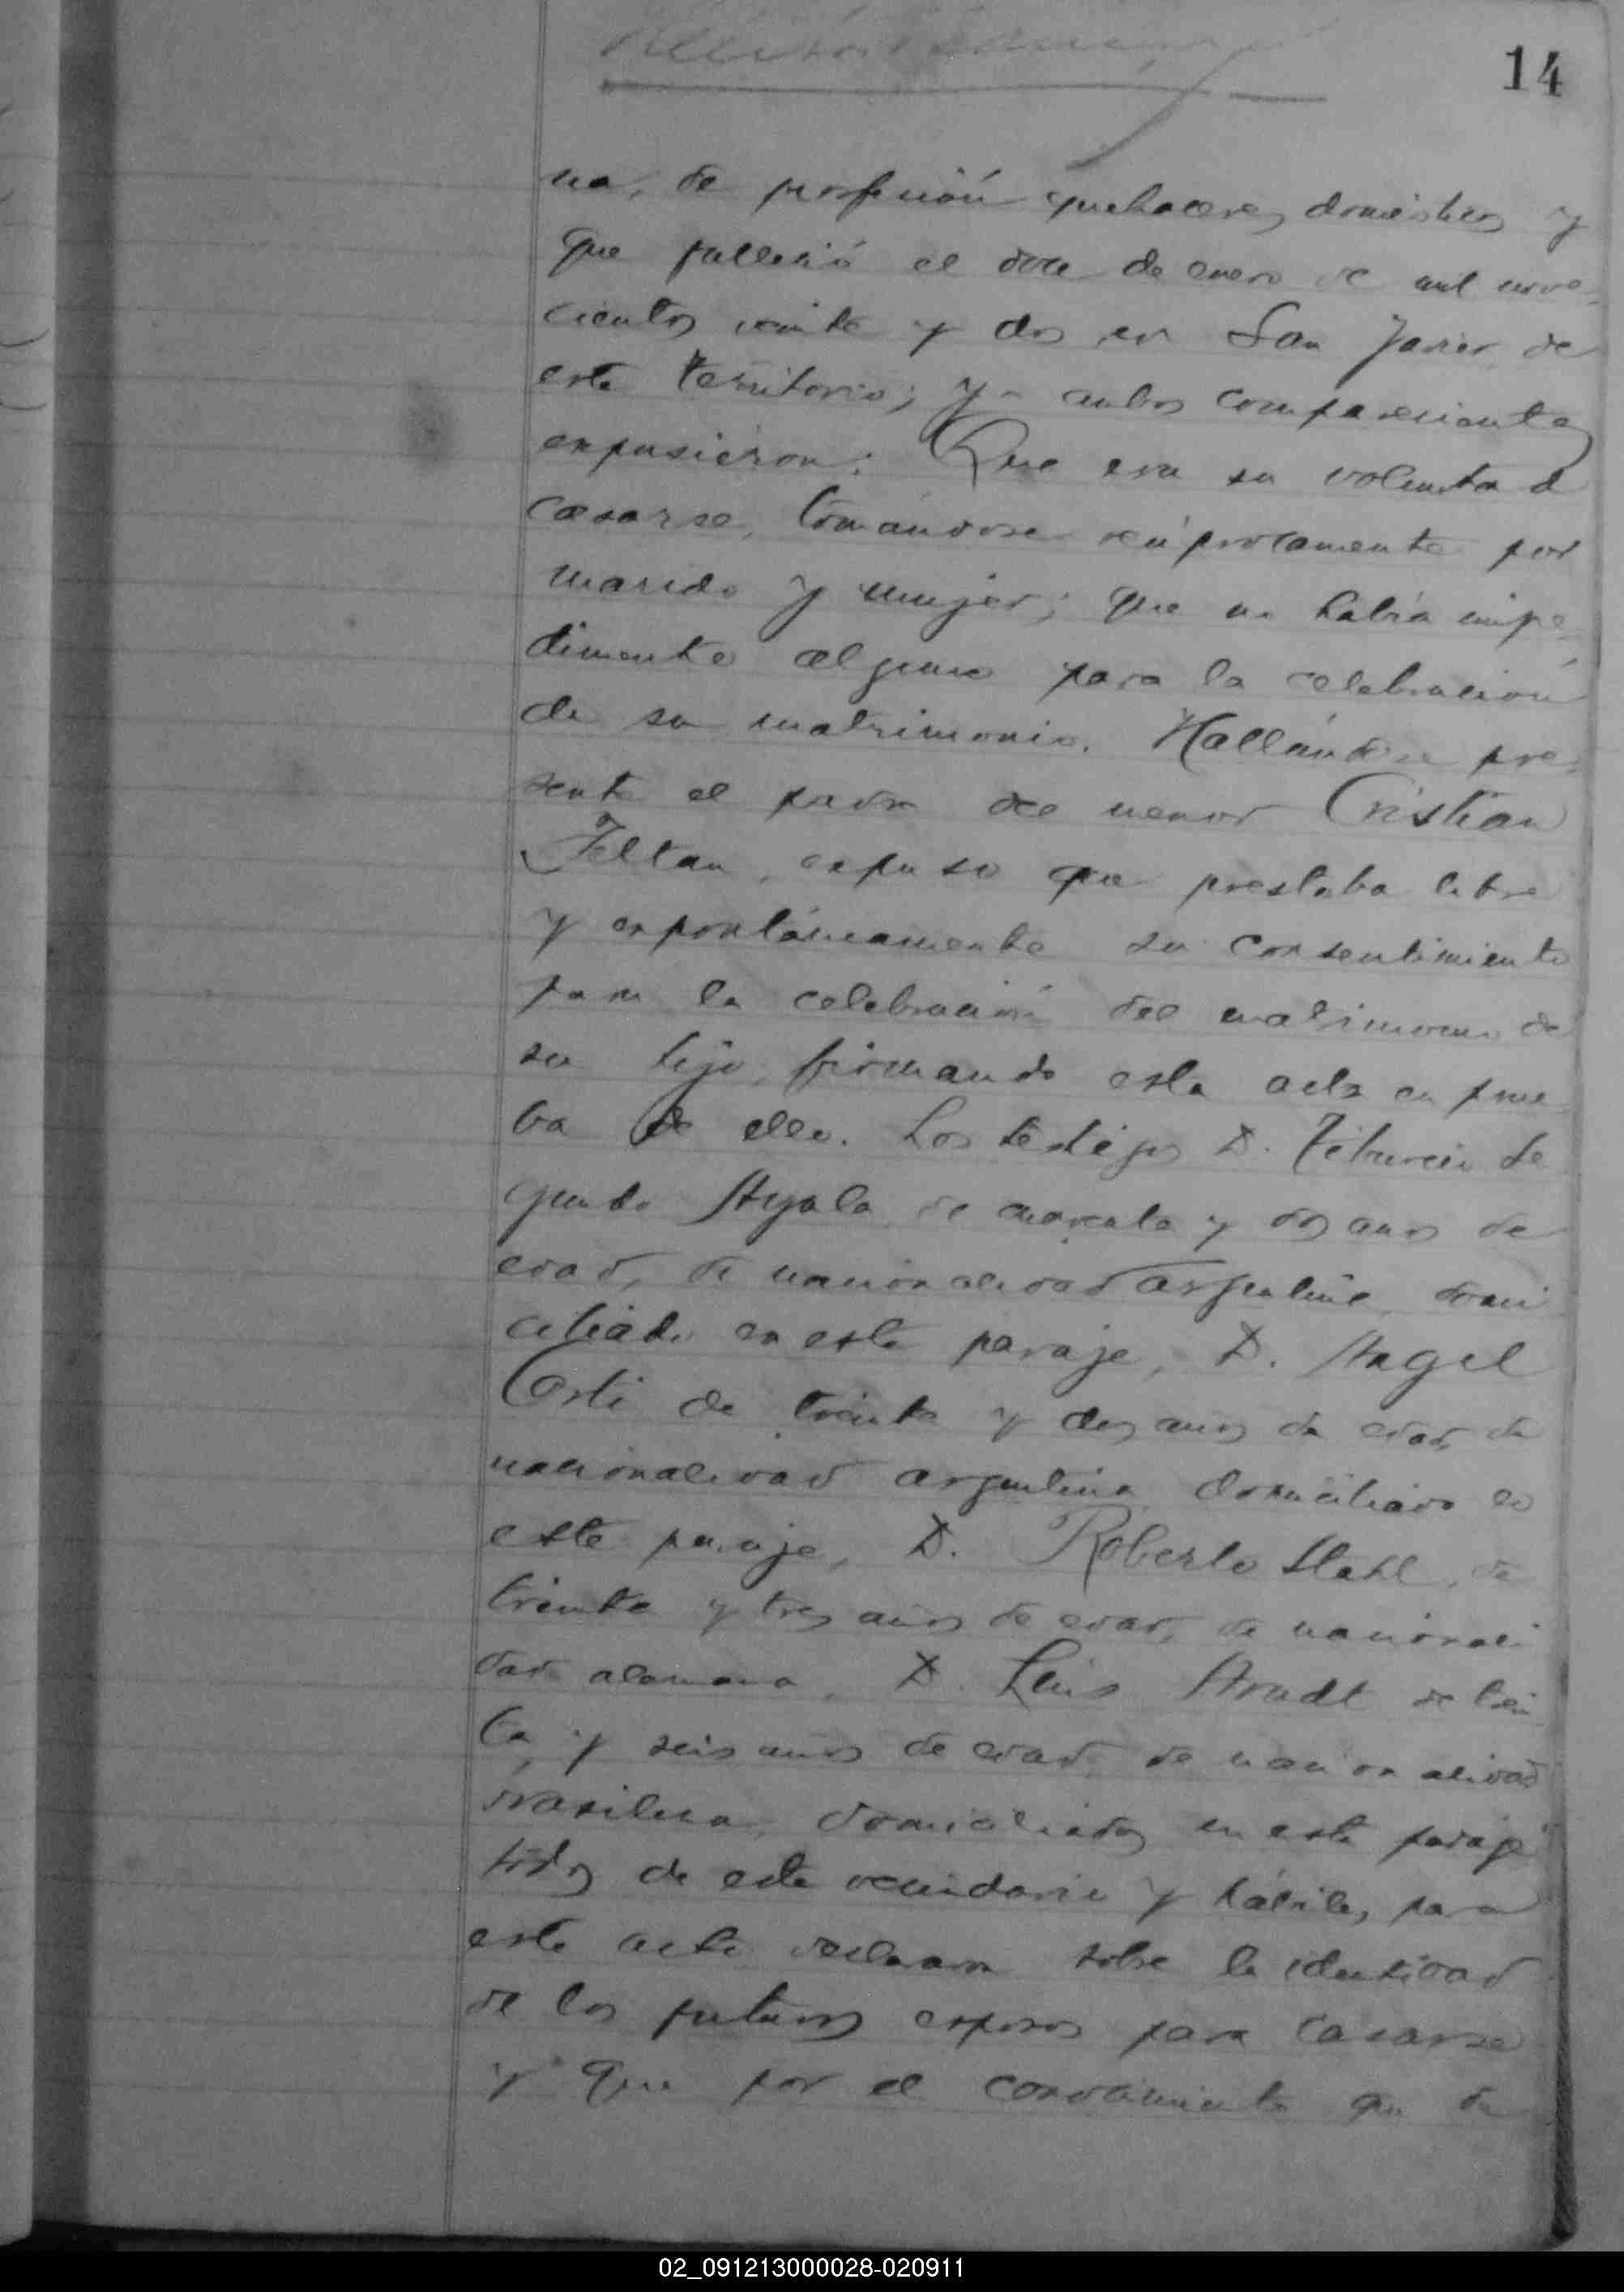 14
na, de profesión quehaceres domésticos y
que falleció el doce de enero de mil nove-
cientos veinte y dos en San Javier de
este territorio; y ambos comparecientes
expusieron: Que era su voluntad
casarse, tomándose recíprocamente por
marido y mujer; que no había impe-
dimento alguno para la celebración
de su matrimonio. Hallándose pre-
sente el padre del menor Cristian
Feltan, expuso que prestaba libre
y expontáneamente su consentimiento
para la celebración del matrimonio de
su hijo, firmando esta acta en prue-
ba de ello. Los testigos D. Tiburcio Se
gundo Ayala de cuarenta y dos años de
edad, de nacionalidad argentina, domi
ciliado en este paraje, D. Angel
de treinta y dos años de edad, de
nacionalidad argentina domiciliado en
este paraje, D. Roberto Stahl, de
treinta y tres años de edad, de nacionali
dad alemana, D. Luis Arndt de trein
ta y seis años de edad de nacionalidad
brasilera, domiciliados en este paraje
todos de este vecindario y hábiles para
este acto declaran sobre la identidad
de los futuros esposos para casarse
y que por el conocimiento que de
02_091213000028-020911